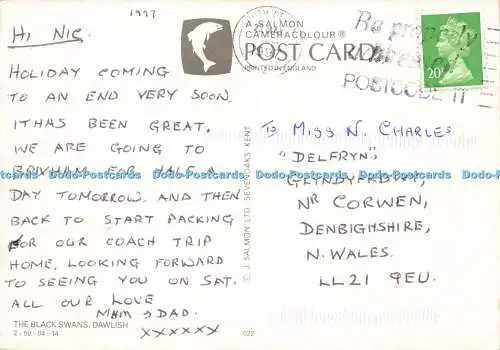 1997
HI NIC.
HOLIDAY COMING
TO AN END VERY SOON.
IT HAS BEEN GREAT.
WE ARE GOING TO
BRIXHAM FOR HALF A
DAY TOMORROW. AND THEN
BACK TO START PACKING
FOR OUR COACH TRIP
HOME, LOOKING FORWARD
TO SEEING YOU ON SAT.
ALL OUR LOVE
MUM & DAD.
XXXXXX
THE BLACK SWANS, DAWLISH
2-50-04-14
022
A SALMON
CAMERACOLOUR®
POST CARD
PRINTED IN ENGLAND
© J. SALMON LTD SEVENOAKS KENT
Be properly
addressed
POSTCODE IT
20
TO MISS N. CHARLES
"DELFRYN",
GLYNDYFRDWY,
NR CORWEN,
DENBIGHSHIRE,
N. WALES.
LL21 9EU.
Dodo-Postcards Dodo-Postcards Dodo-Postcards Dodo-Postcards